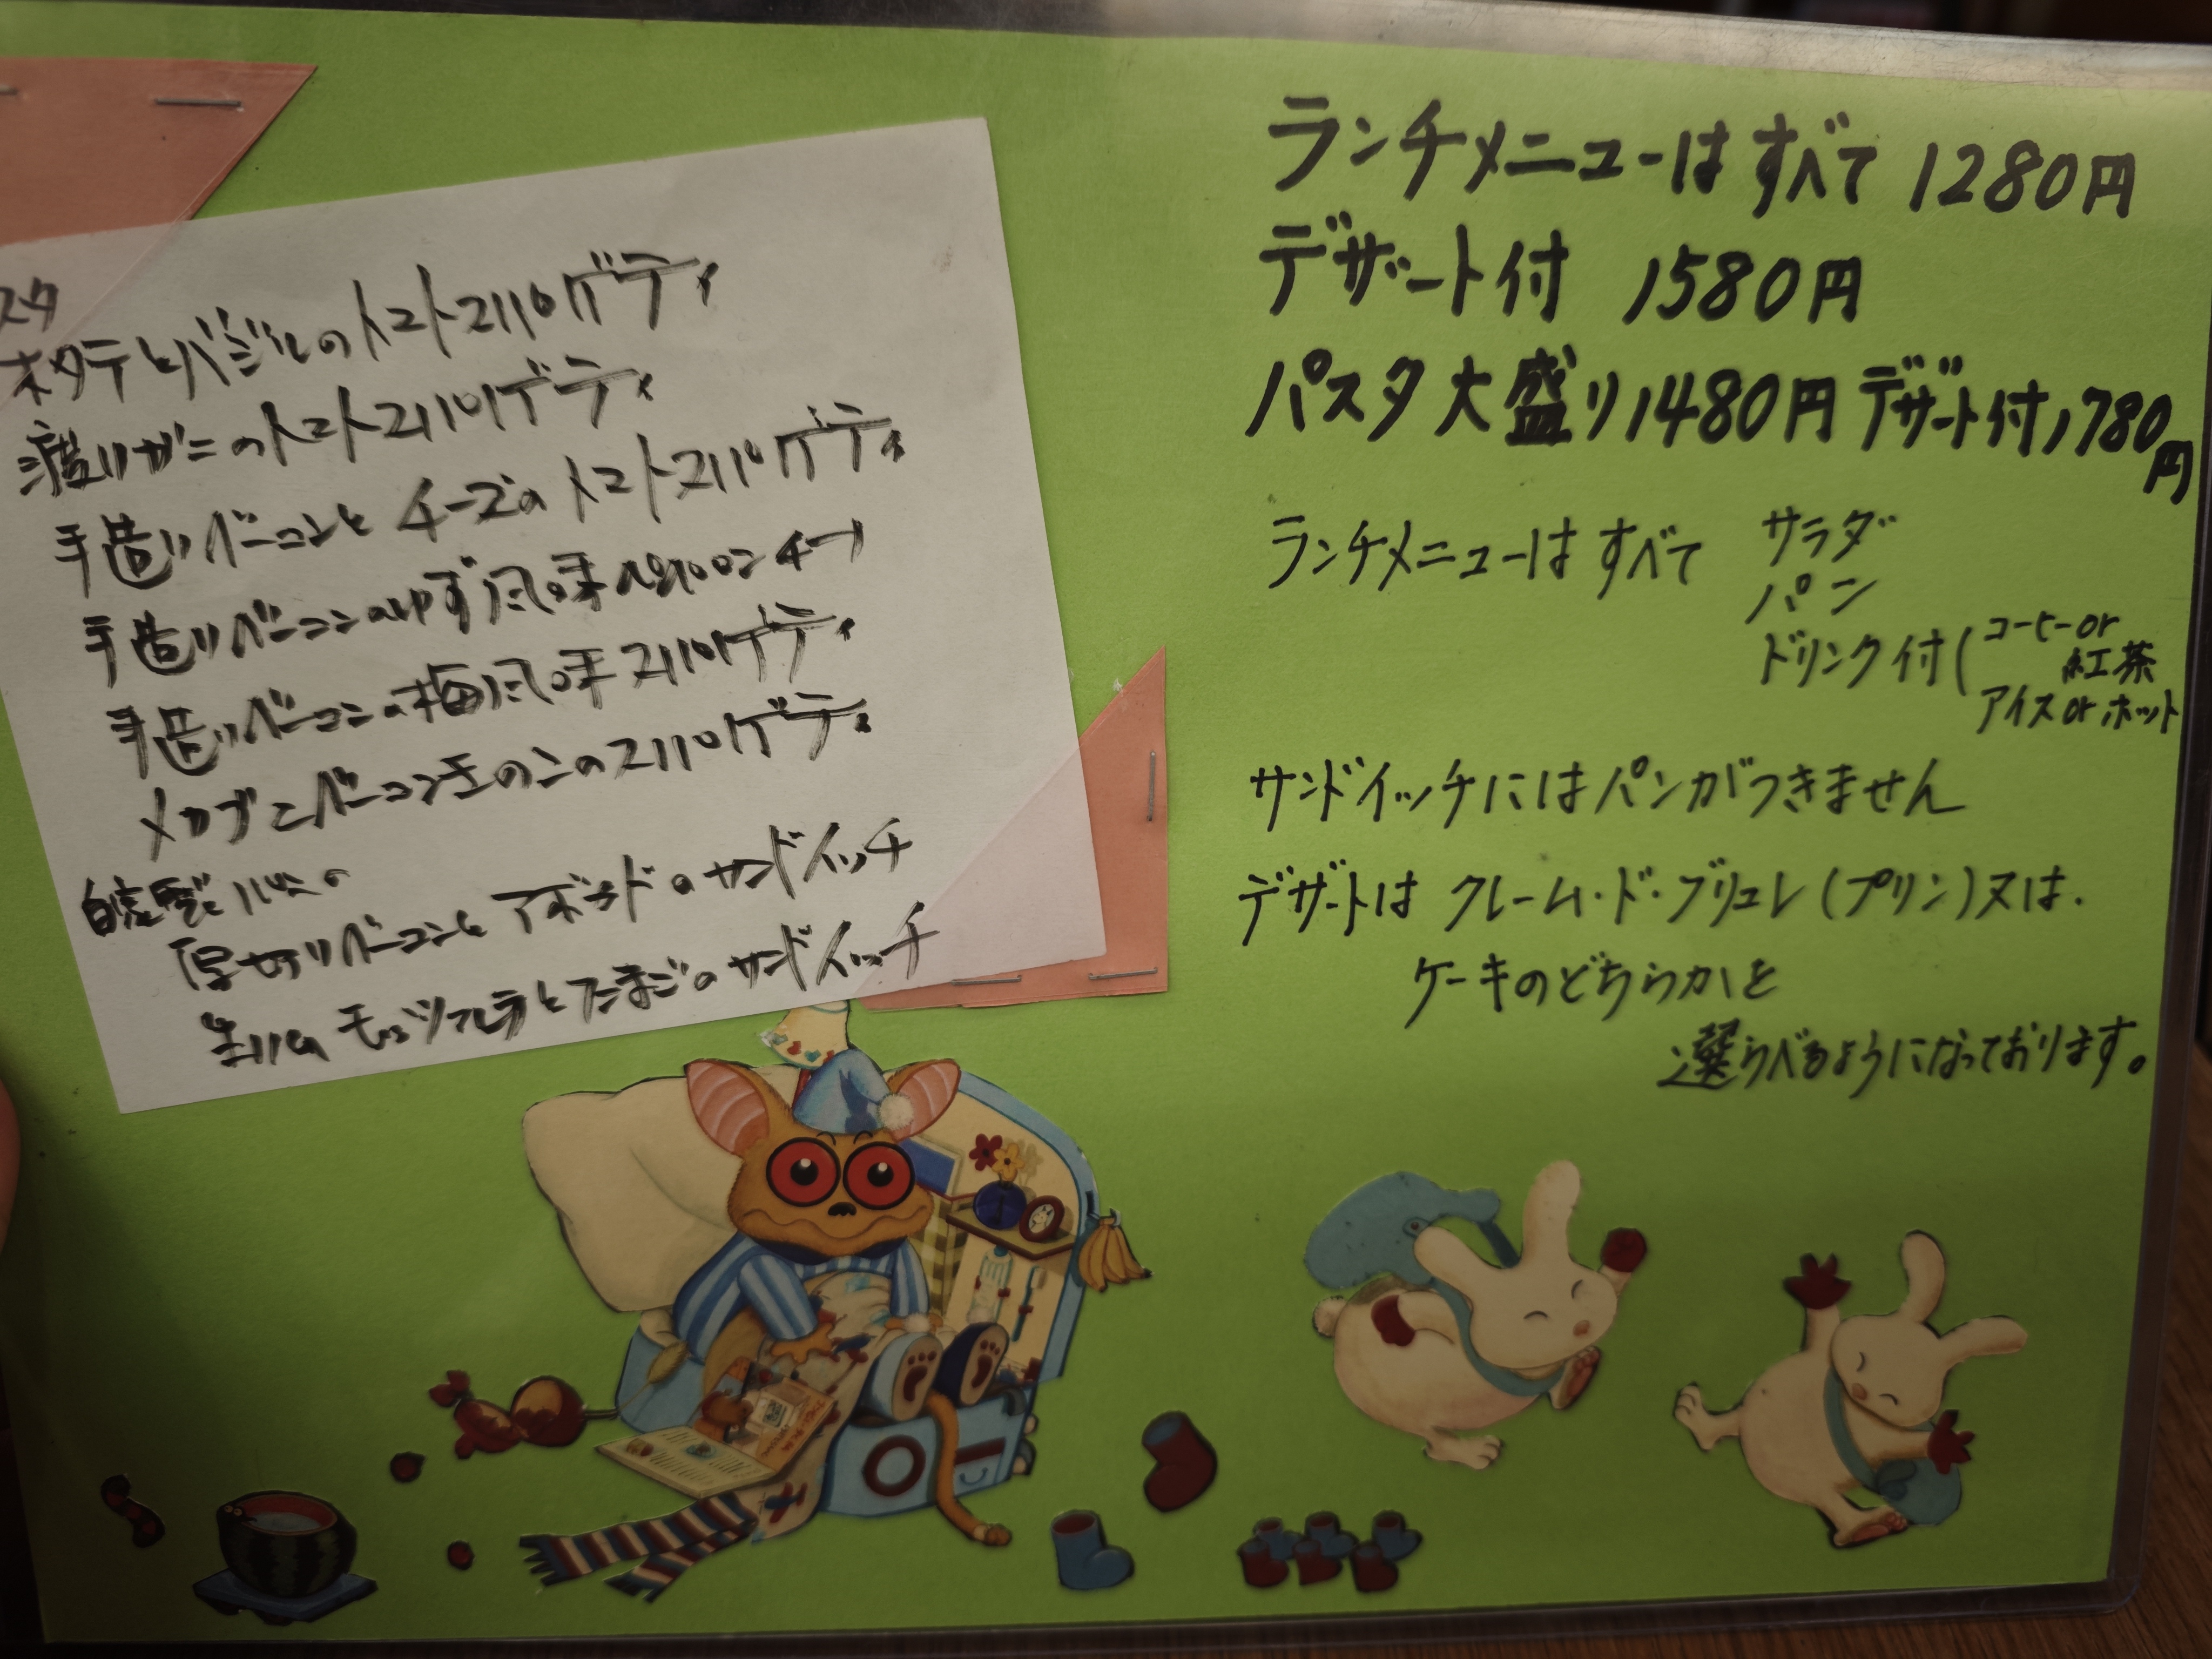 スタ
ホタテとバジルのトマトスパゲティ
渡りガニのトマトスパゲティ
手造りベーコンとチーズのトマトスパゲティ
手造りベーコンのゆず風味ペペロンチーノ
手造りベーコンの梅風味スパゲティ
メカブとベーコンきのこのスパゲティ
自家製パンの
厚切りベーコンとアボカドのサンドイッチ
生ハム モッツァレラとたまごのサンドイッチ
ランチメニューはすべて 1280円
デザート付 1580円
パスタ大盛り1480円 デザート付1780円
ランチメニューは すべて サラダ
パン
ドリンク付(コーヒーor
紅茶
アイスorホット
サンドイッチにはパンがつきません
デザートは クレーム・ド・ブリュレ(プリン)又は.
ケーキのどちらかを
選らべるようになっております。